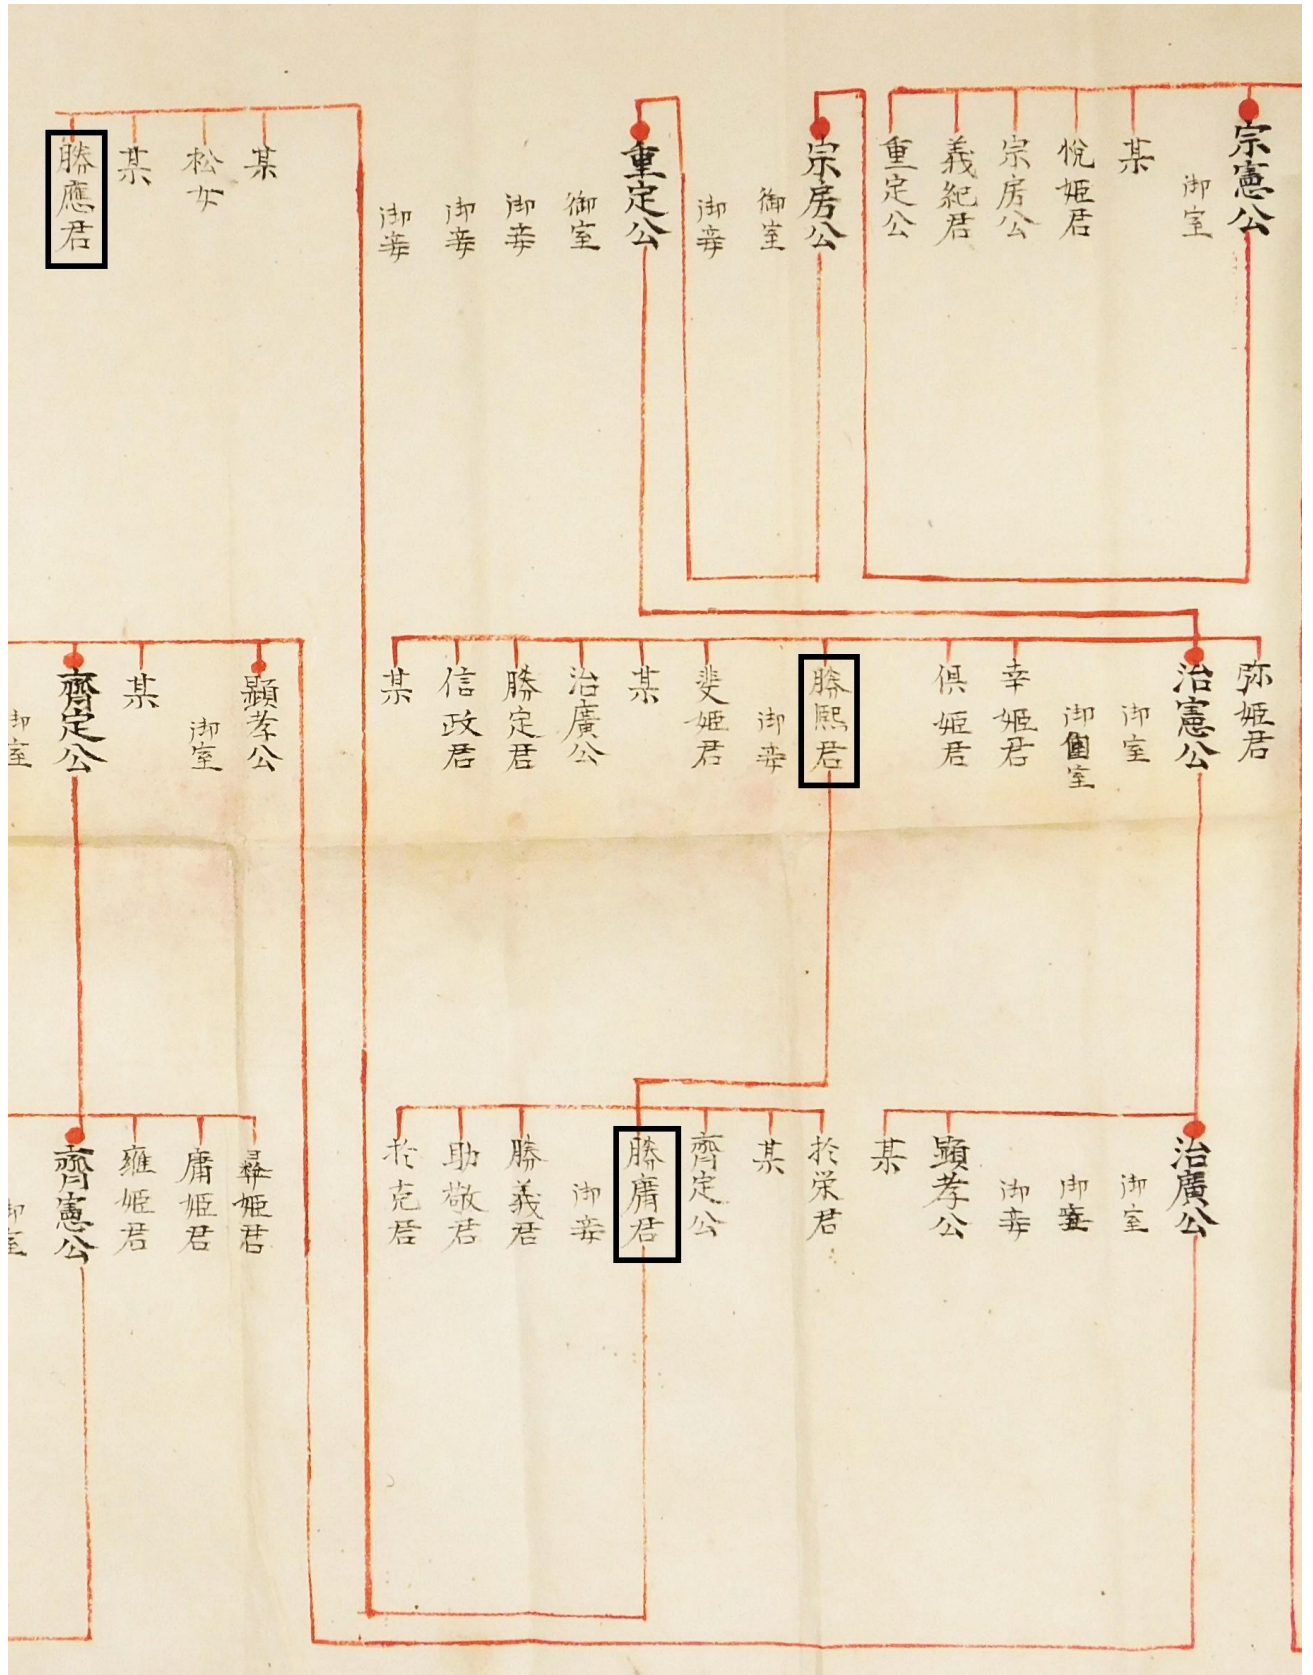 宗憲公
御室
某
悅姫君
宗房公
義紀君
重定公
宗房公
御室
御妾
重定公
御室
御妾
御妾
御妾
某
松女
某
勝應君
弥姫君
治憲公
御室
御室
幸姫君
倶姫君
勝熙君
御妾
斐姫君
某
治廣公
勝定君
信政君
某
顕孝公
御室
某
齊定公
御室
治廣公
御室
御妾
顕孝公
某
於栄君
某
齊定公
勝庸君
御妾
勝義君
助敬君
於克君
姫君
庸姫君
雍姫君
齊憲公
御室